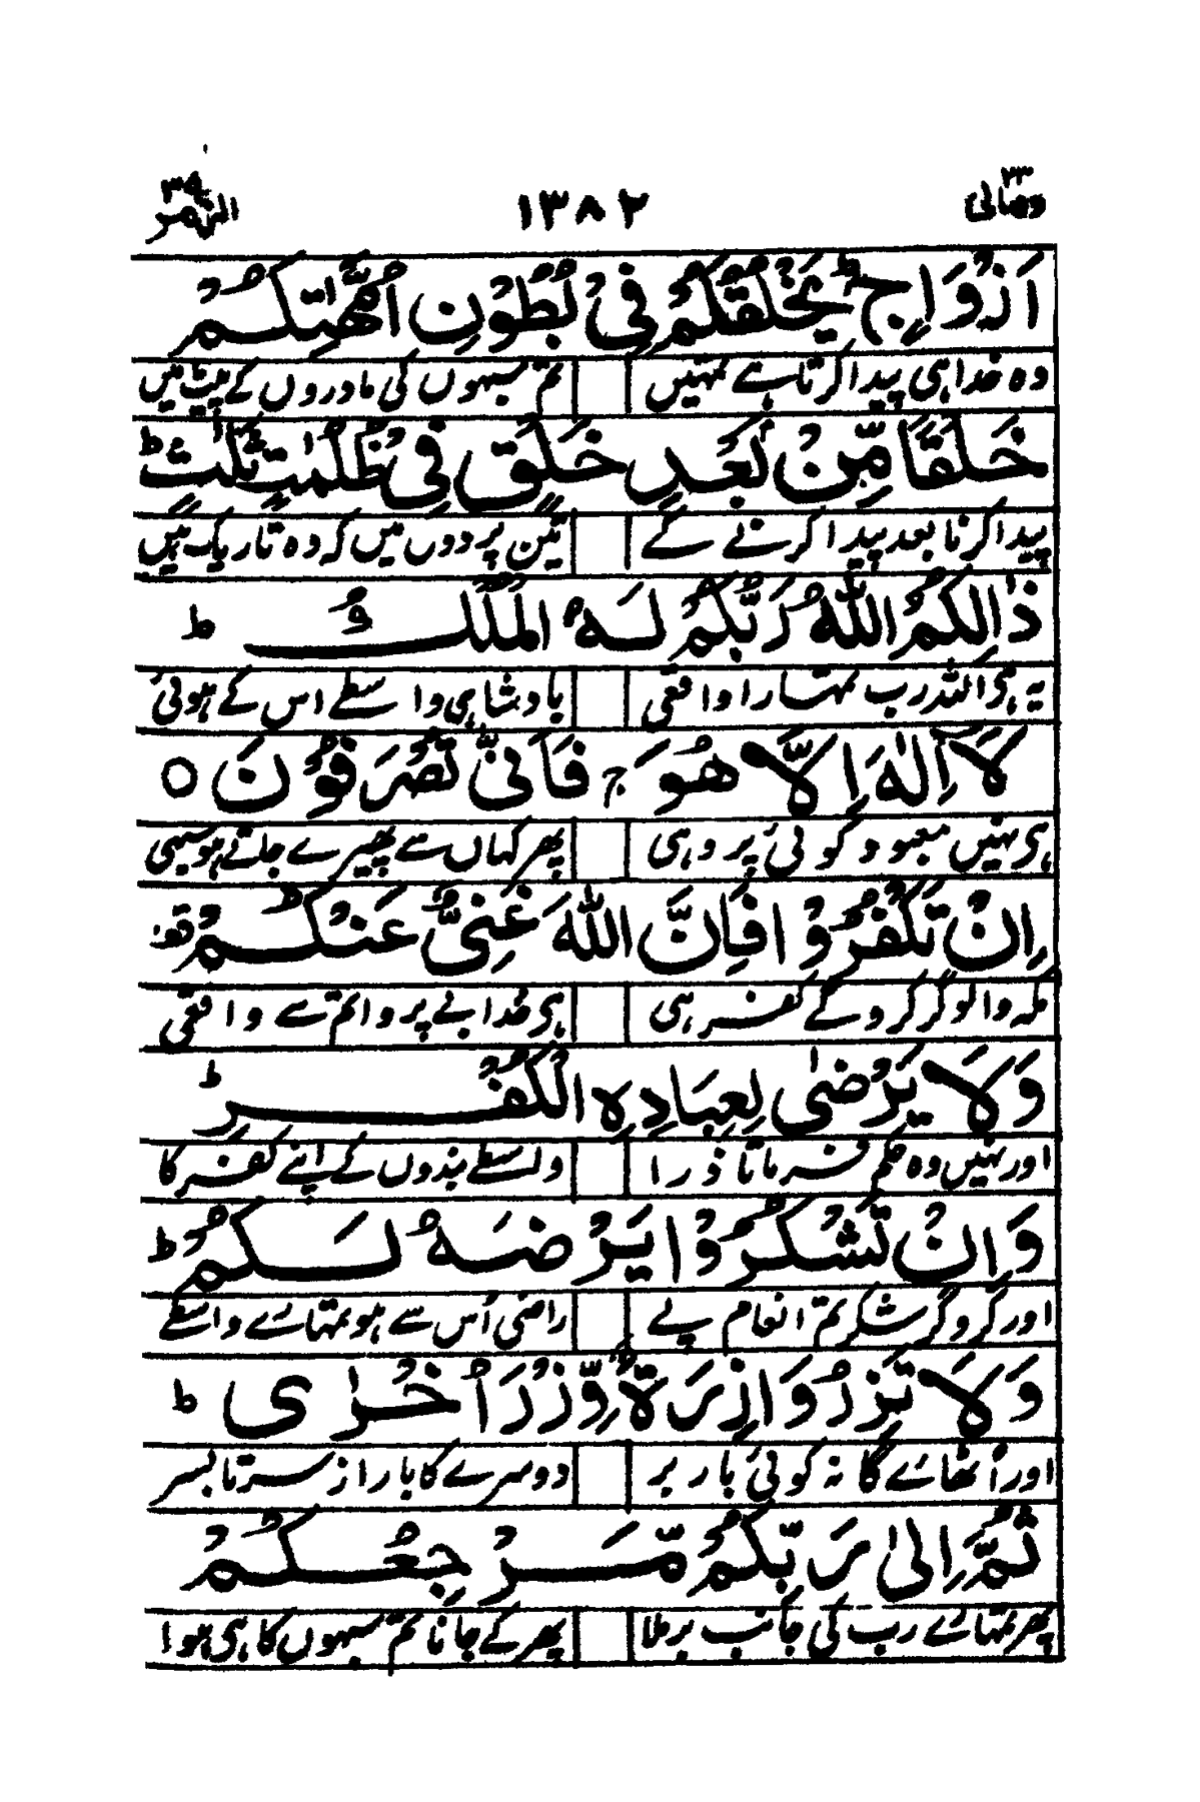 ٢٣ ومالی ١٣٨٢ الزمر ٣٩
اَزْوَاجٍ ط يَخْلُقُكُمْ فِیْ بُطُوْنِ اُمَّهٰتِكُمْ
وہ خدا ہی پیدا کرتا ہے تمہیں تم سبہوں کی مادروں کے پیٹ میں
خَلْقًا مِّنْۢ بَعْدِ خَلْقٍ فِیْ ظُلُمٰتٍ ثَلٰثٍ ط
پیدا کرنا بعد پیدا کرنے کے تین پردوں میں کہ وہ تاریک ہیں
ذٰالِكُمُ اللّٰهُ رَبُّكُمْ لَهُ الْمُلْكُ ط
یہ ہی اللہ رب تمہارا واقعی بادشاہی واسطے اس کے ہوئی
لَاۤ اِلٰهَ اِلَّا هُوَ ج فَاَنّٰی تُصْرَفُوْنَ ○
ہی نہیں معبود کوئی پر وہی پھر کہاں سے پھیرے جاتے ہو سبہی
اِنْ تَكْفُرُوْا فَاِنَّ اللّٰهَ غَنِیٌّ عَنْكُمْ قف
مکہ والو گر کرو گے کفر ہی ہی خدا بے پروا تم سے واقعی
وَلَا يَرْضٰی لِعِبَادِهِ الْكُفْرَ ط
اور نہیں وہ حکم فرماتا ذرا واسطے بندوں کے اپنے کفر کا
وَاِنْ تَشْكُرُوْا يَرْضَهُ لَكُمْ ط
اور گر کرو گر شکر تم انعام پے راضی اُس سے ہو تمہارے واسطے
وَلَا تَزِرُ وَازِرَةٌ وِّزْرَ اُخْرٰی ط
اور اُٹھاے گا نہ کوئی بار بر دوسرے کا بار از سر تا بسر
ثُمَّ اِلٰی رَبِّكُمْ مَّرْجِعُكُمْ
پھر تمہارے رب کی جانب برملا پھر کے جانا تم سبہوں کا ہی ہوا